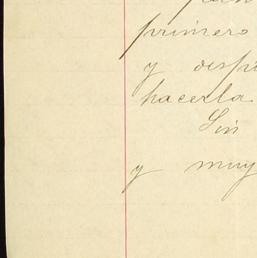 primero
y
hacerla
Sin
y muy